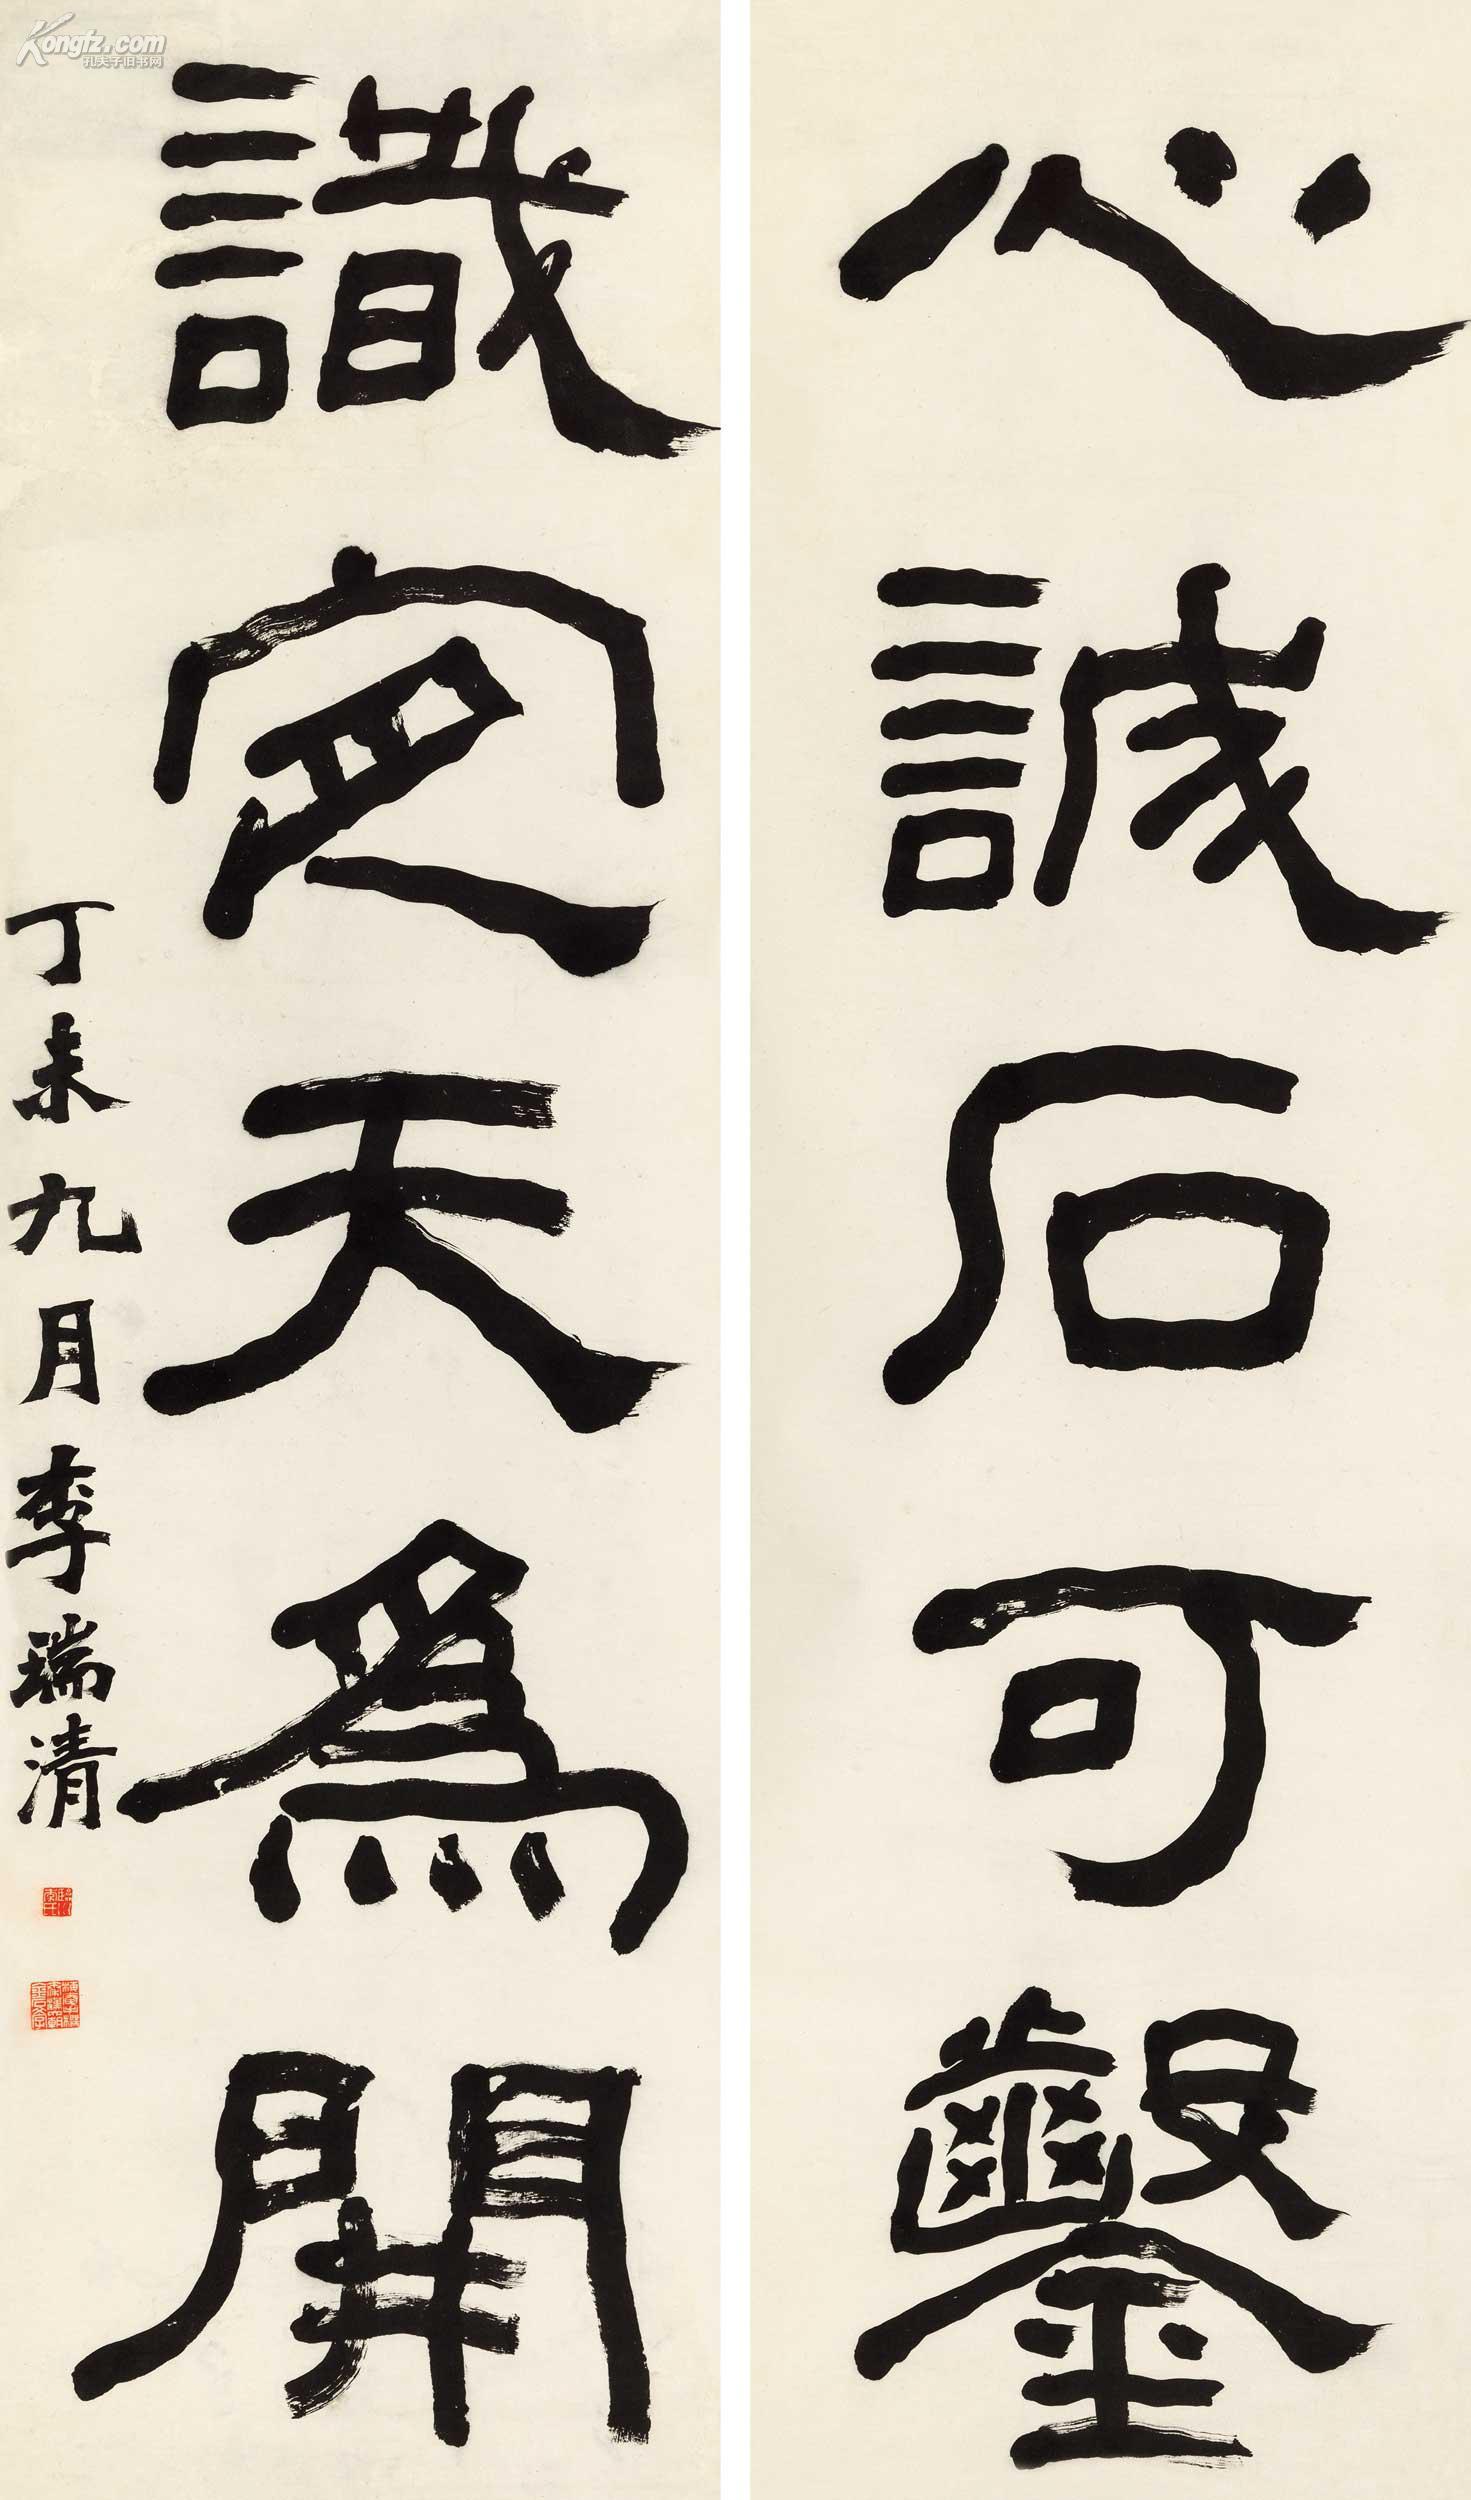 Kongfz.com
孔夫子旧书网
心誠石可鑿
識定天爲開
丁未九月李瑞清
臨川李氏